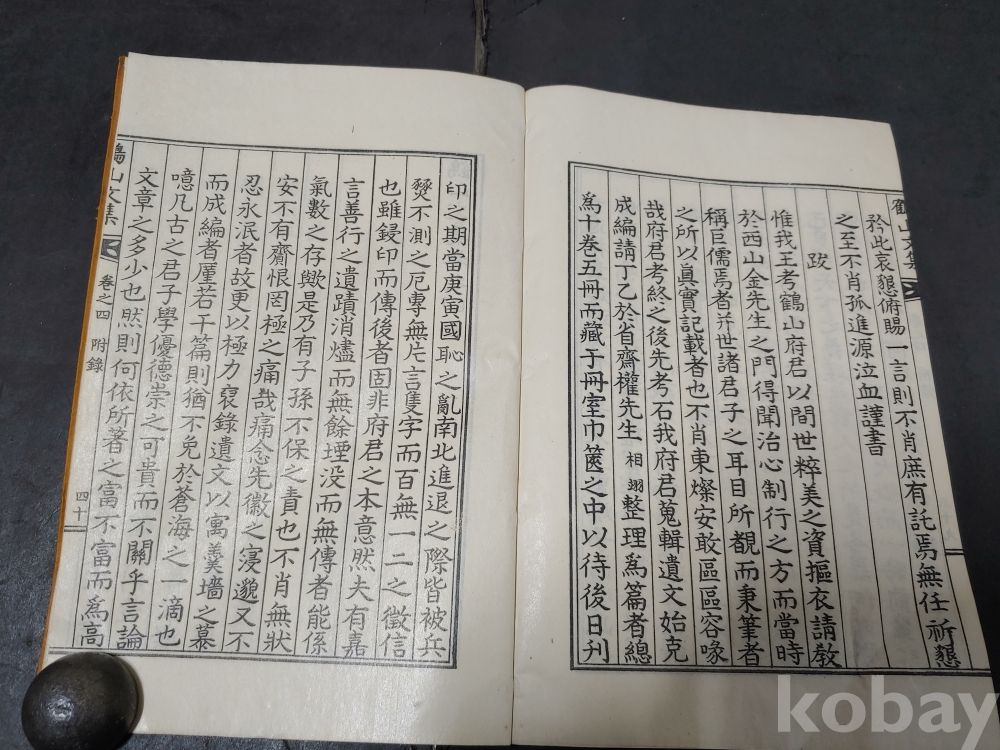 矜此哀懇俯賜一言則不肖庶有託焉無任祈懇
之至不肖孤進源泣血謹書
跋
惟我王考鶴山府君以間世粹美之資摳衣請敎
於西山金先生之門得聞治心制行之方而當時
稱巨儒焉者并世諸君子之耳目所覩而秉筆者
之所以眞實記載者也不肖東燦安敢區區容喙
哉府君考終之後先考石我府君蒐輯遺文始克
成編請丁乙於省齋權先生相翊整理爲篇者總
爲十卷五冊而藏于冊室巾篋之中以待後日刊
印之期當庚寅國恥之亂南北進退之際皆被兵
燹不測之厄專無片言隻字而百無一二之徵信
也雖鋟印而傳後者固非府君之本意然夫有嘉
言善行之遺蹟消燼而無餘堙没而無傳者能係
氣數之存歟是乃有子孫不保之責也不肖無狀
安不有齎恨罔極之痛哉痛念先徽之寖邈又不
忍永泯者故更以極力裒錄遺文以寓羹墻之慕
而成編者厪若干篇則猶不免於蒼海之一滴也
噫凡古之君子學優德崇之可貴而不關乎言論
文章之多少也然則何依所著之富不富而爲高
鶴山文集
卷之四 附錄
四十
kobay